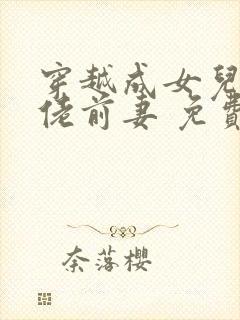 穿越成女兒
佬前妻 免費
奈落櫻